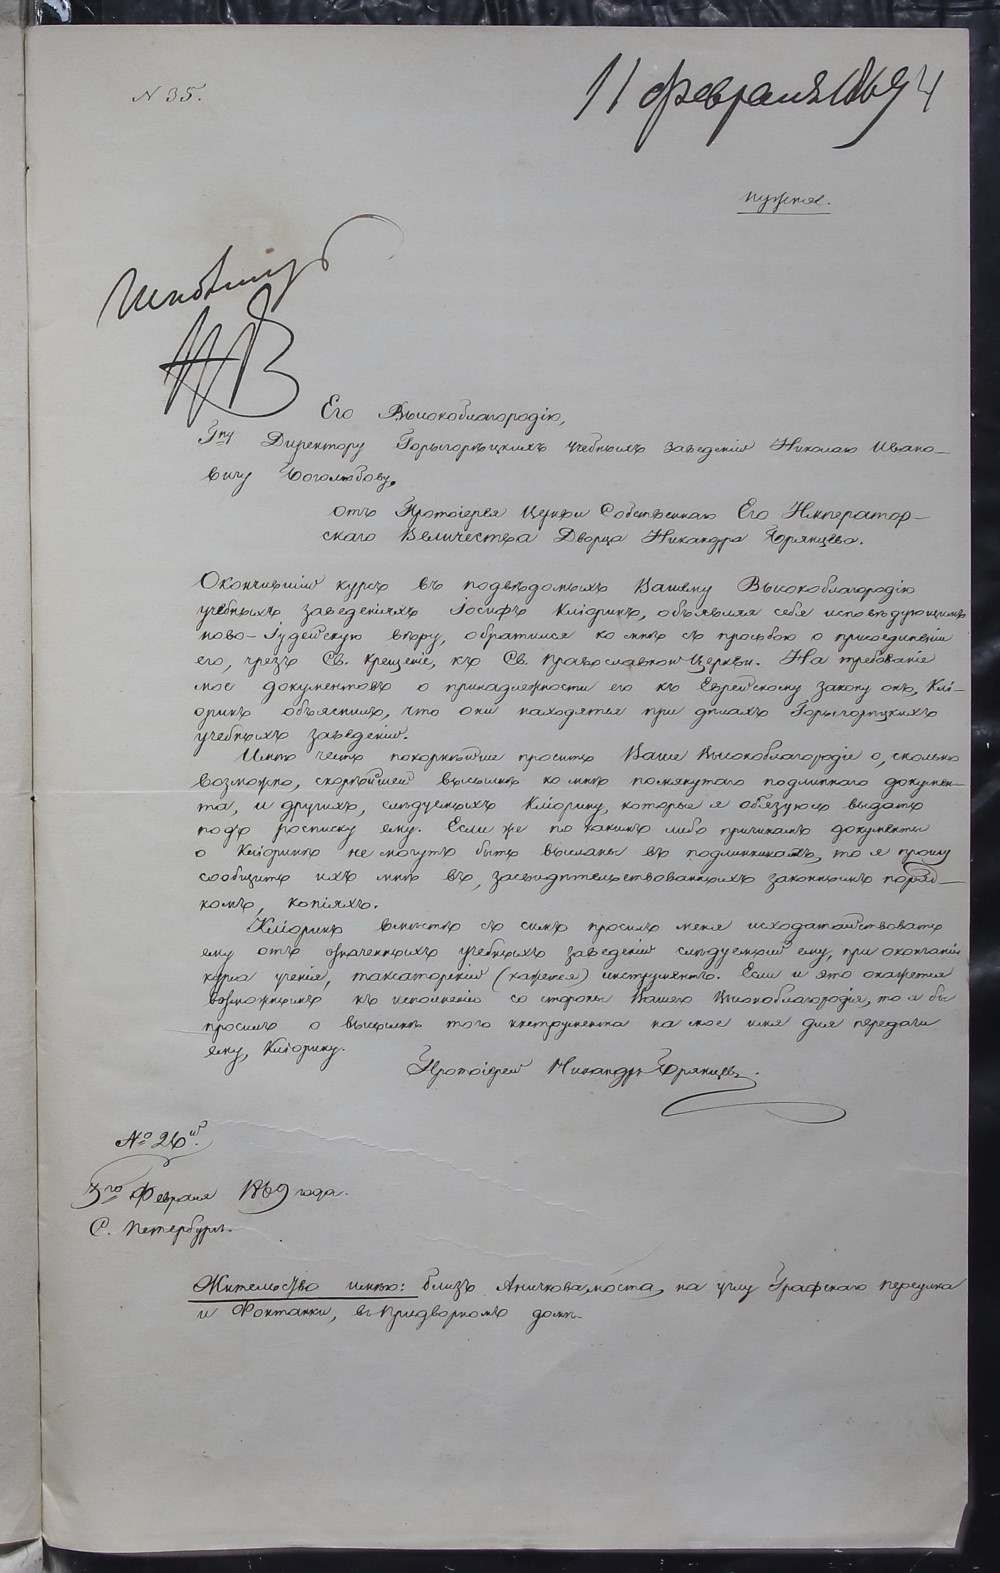 N 35.
11 февраля 1869 4
нужное.
Его Высокоблагородію,
Гну Директору Горыгорецкихъ учебныхъ заведеній Николаю Ивано-
вичу Боголюбову,
отъ Протоіерея Церкви Собственнаго Его Император-
скаго Величества Дворца Никандра Брянцева.
Окончившій курсъ въ подвѣдомыхъ Вашему Высокоблагородію
учебныхъ заведеніяхъ Іосифъ Кліоринъ, объявляя себя исповѣдующимъ
ново-Іудейскую вѣру, обратился ко мнѣ съ просьбою о присоединеніи
его, чрезъ Св. Крещеніе, къ Св. Православной Церкви. На требованіе
мое документовъ о принадлежности его къ Еврейскому закону онъ, Клі-
оринъ объяснилъ, что они находятся при дѣлахъ Горыгорецкихъ
учебныхъ заведеній.
Имѣю честь покорнѣйше просить Ваше Высокоблагородіе о, сколько
возможно, скорѣйшей высылкѣ ко мнѣ помянутаго подлиннаго докумен-
та, и другихъ, слѣдуемыхъ Кліорину, которые я обязуюсь выдать
подъ росписку ему. Если же по какимъ либо причинамъ документы
о Кліоринѣ не могутъ быть высланы въ подлинникахъ, то я прошу
сообщить ихъ мнѣ въ, засвидѣтельствованныхъ законнымъ поряд-
комъ, копіяхъ.
Кліоринъ вмѣстѣ съ симъ просилъ меня исходатайствовать
ему отъ означенныхъ учебныхъ заведеній слѣдуемый ему, при окончаніи
курса ученія, таксаторскій (кажется) инструментъ. Если и это окажется
возможнымъ къ исполненію со стороны Вашего Высокоблагородія, то я бы
просилъ о высылкѣ того инструмента на мое имя для передачи
ему, Кліорину.
Протоіерей Никандръ Брянцевъ.
№ 26й.
5го Февраля 1869 года.
С. Петербургъ.
Жительство имѣю: близъ Аничкова моста, на углу Графскаго переулка
и Фонтанки, въ Придворномъ домѣ.